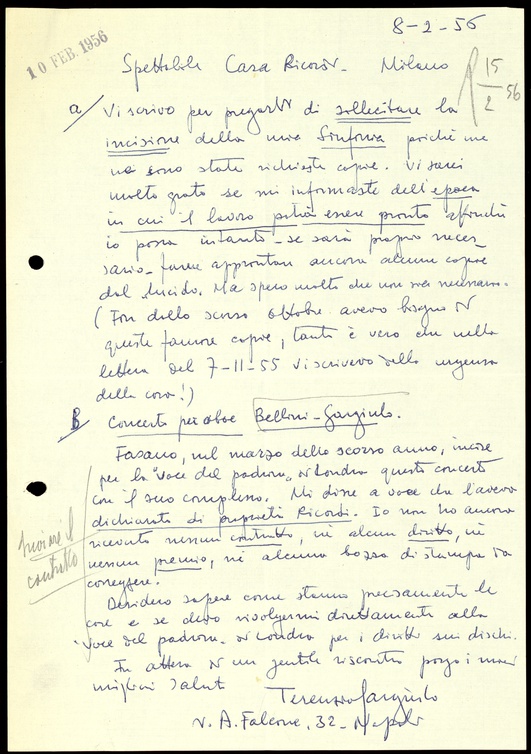 8-2-56
10 FEB. 1956
Spettabile Casa Ricordi - Milano
15
2 56
a/ Vi scrivo per pregarVi di sollecitare la
incisione della mia Sinfonia poichè me
ne sono state richieste copie. Vi sarei
molto grato se mi informaste dell'epoca
in cui il lavoro potrà essere pronto affinchè
io possa intanto - se sarà proprio neces-
sario - farne approntare ancora alcune copie
dal lucido. Ma spero molto che non sia necessario.
(Fin dallo scorso ottobre avevo bisogno di
queste famose copie, tanto è vero che nella
lettera del 7-11-55 Vi scrivevo della urgenza
della cosa!)
B/ Concerto per oboe Bellini-Gargiulo.
Fasano, nel marzo dello scorso anno, incise
per la "Voce del padrone" di Londra questo concerto
con il suo complesso. Mi disse a voce che l'aveva
dichiarato di proprietà Ricordi. Io non ho ancora
ricevuto nessun contratto, nè alcun diritto, nè
nessun premio, nè alcuna bozza di stampa da
correggere.
inviare il
contratto
Desidero sapere come stanno precisamente le
cose e se devo rivolgermi direttamente alla
"Voce del padrone" di Londra per i diritti sui dischi.
In attesa di un gentile riscontro porgo i miei
migliori saluti
Terenzio Gargiulo
V. A. Falcone, 32 - Napoli